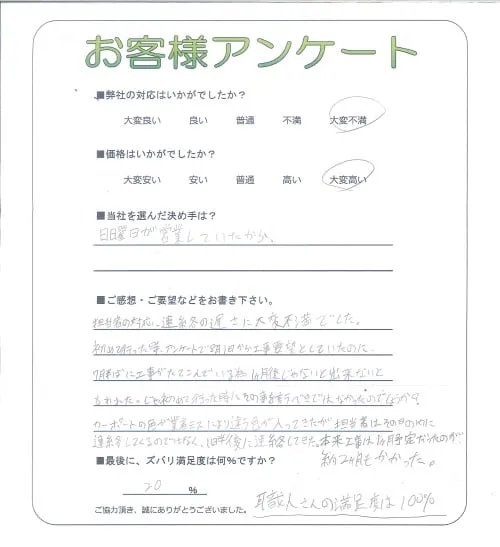 お客様アンケート
■弊社の対応はいかがでしたか？
大変良い 良い 普通 不満 大変不満
■価格はいかがでしたか？
大変安い 安い 普通 高い 大変高い
■当社を選んだ決め手は？
日曜日が営業していたから。
■ご感想・ご要望などをお書き下さい。
担当者の対応、連絡等の遅さに大変不満でした。
初めて行った際、アンケートで8月1日から工事要望としていたのに、
7月半ばに工事がたてこんでいる為、1ヶ月後じゃないと出来ないと
初めに行った時に、その事を言うべきではなかったのでしょうか?
カーポートの色が業者ミスにより違う色が入ってきたが担当者はその日の内に
連絡をしてくるのではなく、後に連絡してきた。本来工事は1ヶ月予定だったのが
約2ヶ月もかかった。
■最後に、ズバリ満足度は何%ですか？
20 %
職人さんの満足度は100%
ご協力頂き、誠にありがとうございました。